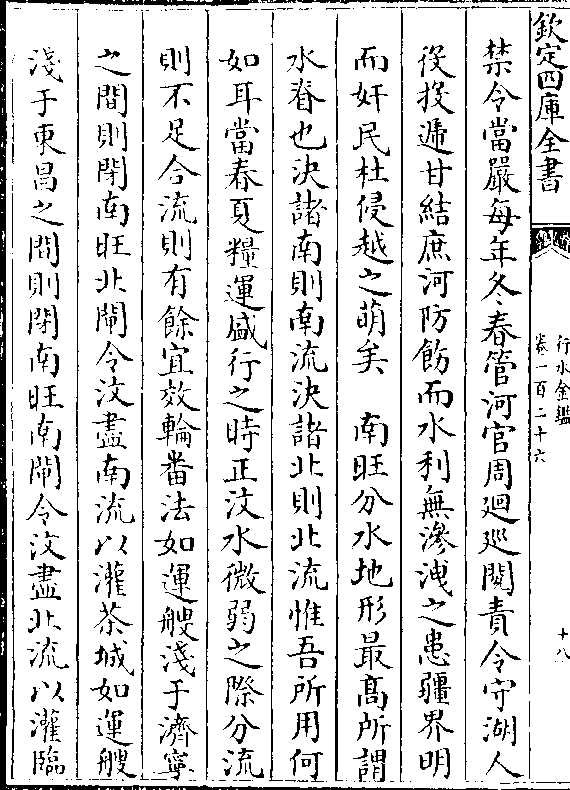 欽定四庫全書
行水金鑑
卷一百二十六
十八
禁令當嚴每年冬春管河官周廻廵閱責令守湖人
役投遞甘結庶河防飭而水利無滲洩之患疆界明
而奸民杜侵越之萌矣　南旺分水地形最髙所謂
水脊也決諸南則南流決諸北則北流惟吾所用何
如耳當春夏糧運盛行之時正汶水微弱之際分流
則不足合流則有餘宜效輪畨法如運艘淺于濟寧
之間則閉南旺北閘令汶盡南流以灌茶城如運艘
淺于東昌之間則閉南旺南閘令汶盡北流以灌臨